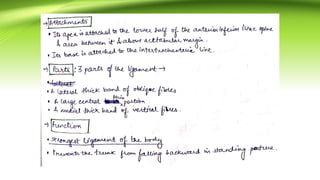 → Attachments
• Its apex is attached to the lower half of the anterior inferior iliac spine
& area between it & above acetabular margin.
• Its base is attached to the Intertrochanteric line.
→ Parts : 3 parts of the ligament →
• A lateral thick band of oblique fibres
• A large central thin portion
• A medial thick band of vertical fibres.
→ Function
• strongest ligament of the body
• Prevents the trunk from falling backward in standing posture.